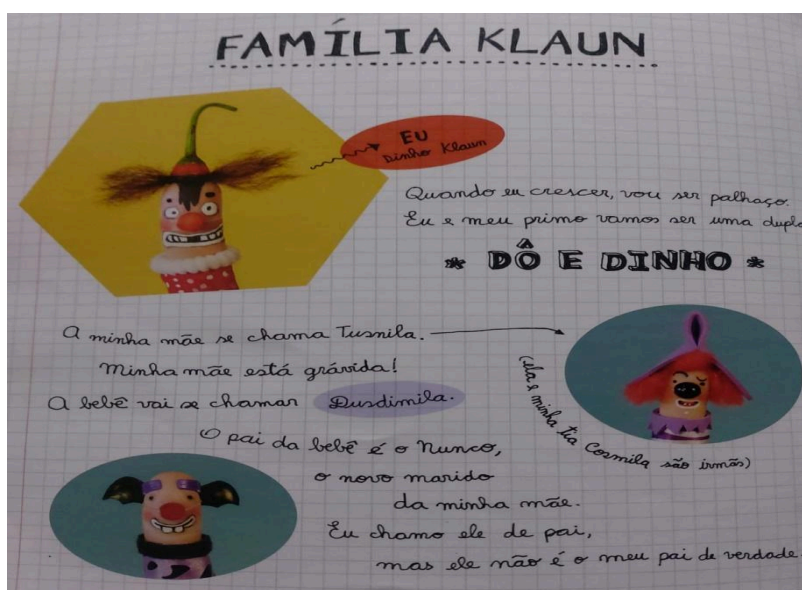 FAMÍLIA KLAUN
EU
Dinho Klaun
Quando eu crescer, vou ser palhaço.
Eu e meu primo vamos ser uma dupla
* DÔ E DINHO *
A minha mãe se chama Tusnila.
Minha mãe está grávida!
A bebê vai se chamar Dusdimila.
(ela e minha tia Cosmila são irmãs)
O pai da bebê é o Nunco,
o novo marido
da minha mãe.
Eu chamo ele de pai,
mas ele não é o meu pai de verdade.